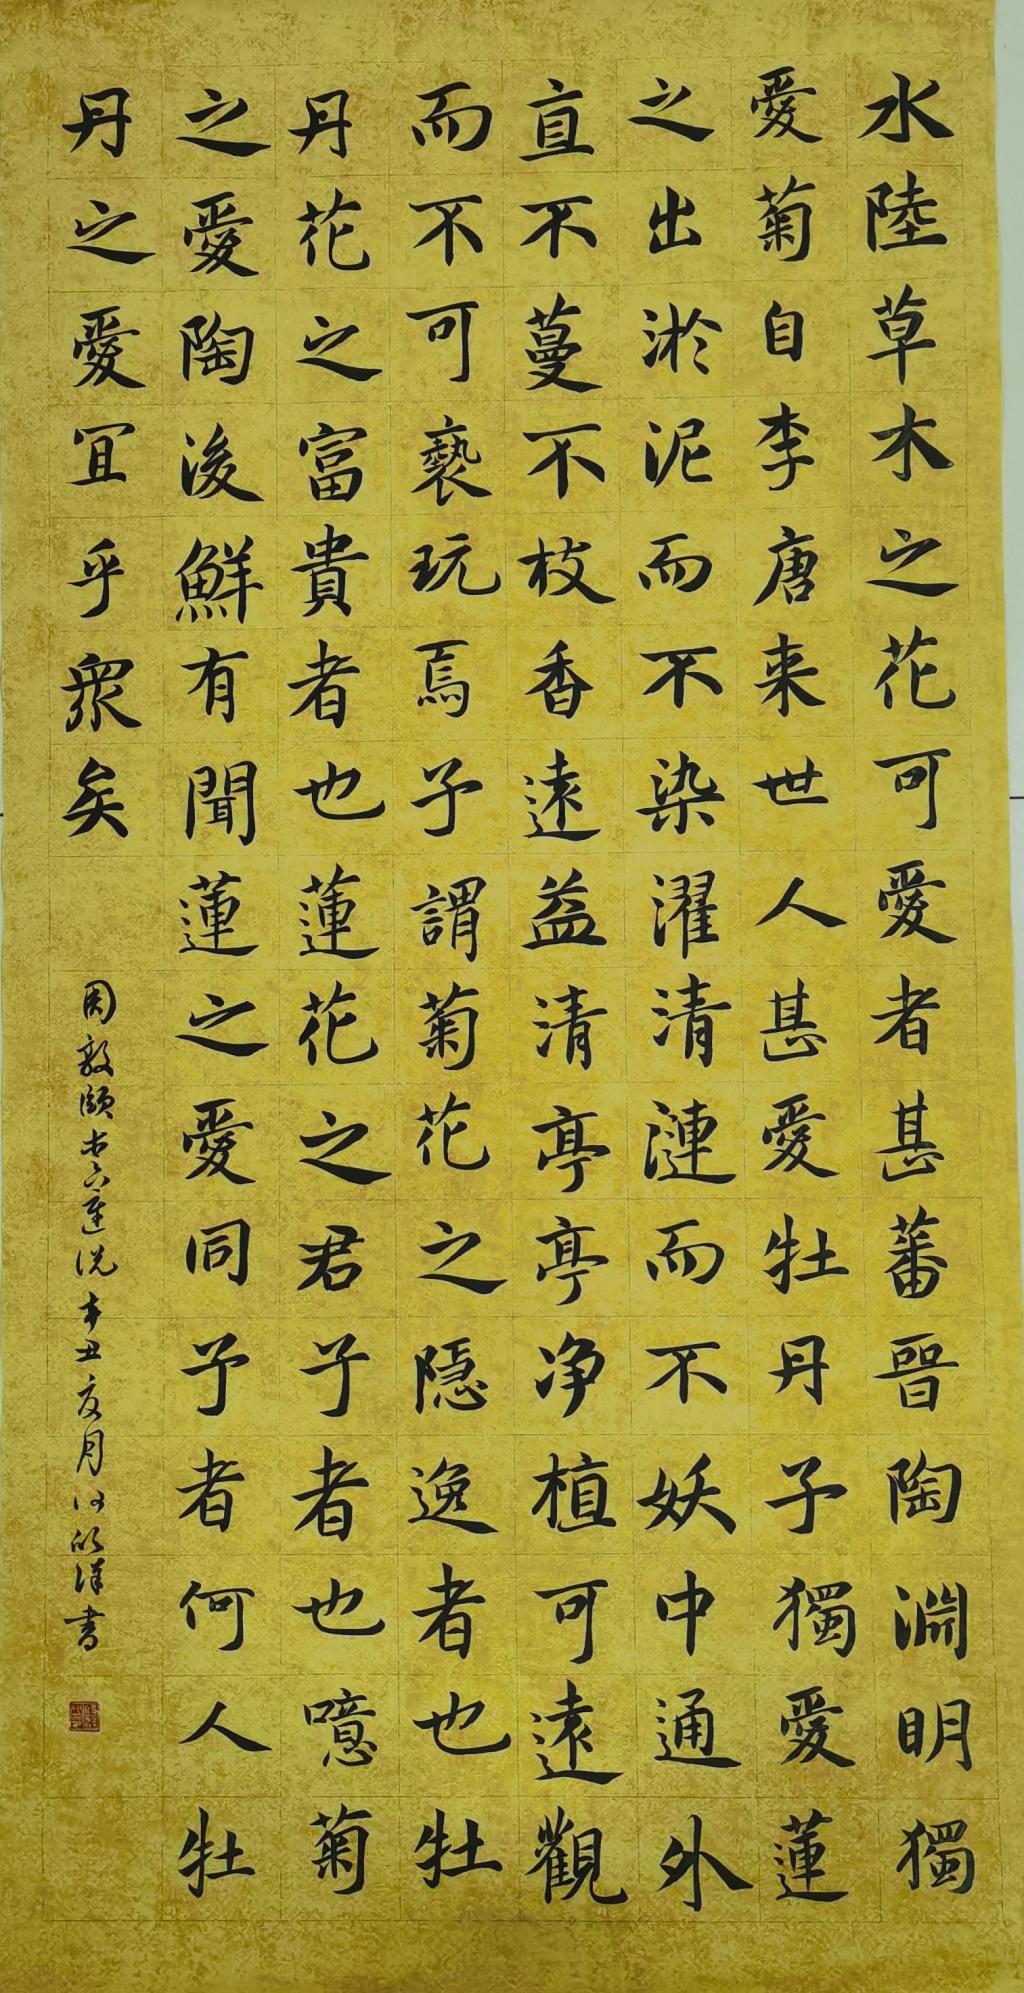 水陸草木之花可愛者甚蕃晉陶淵明獨
愛菊自李唐来世人甚愛牡丹予獨愛蓮
之出淤泥而不染濯清漣而不妖中通外
直不蔓不枝香遠益清亭亭净植可遠觀
而不可褻玩焉予謂菊花之隠逸者也牡
丹花之富貴者也蓮花之君子者也噫菊
之愛陶後鮮有聞蓮之愛同予者何人牡
丹之愛宜乎衆矣
周敦頤 蓮说 辛丑 月 书